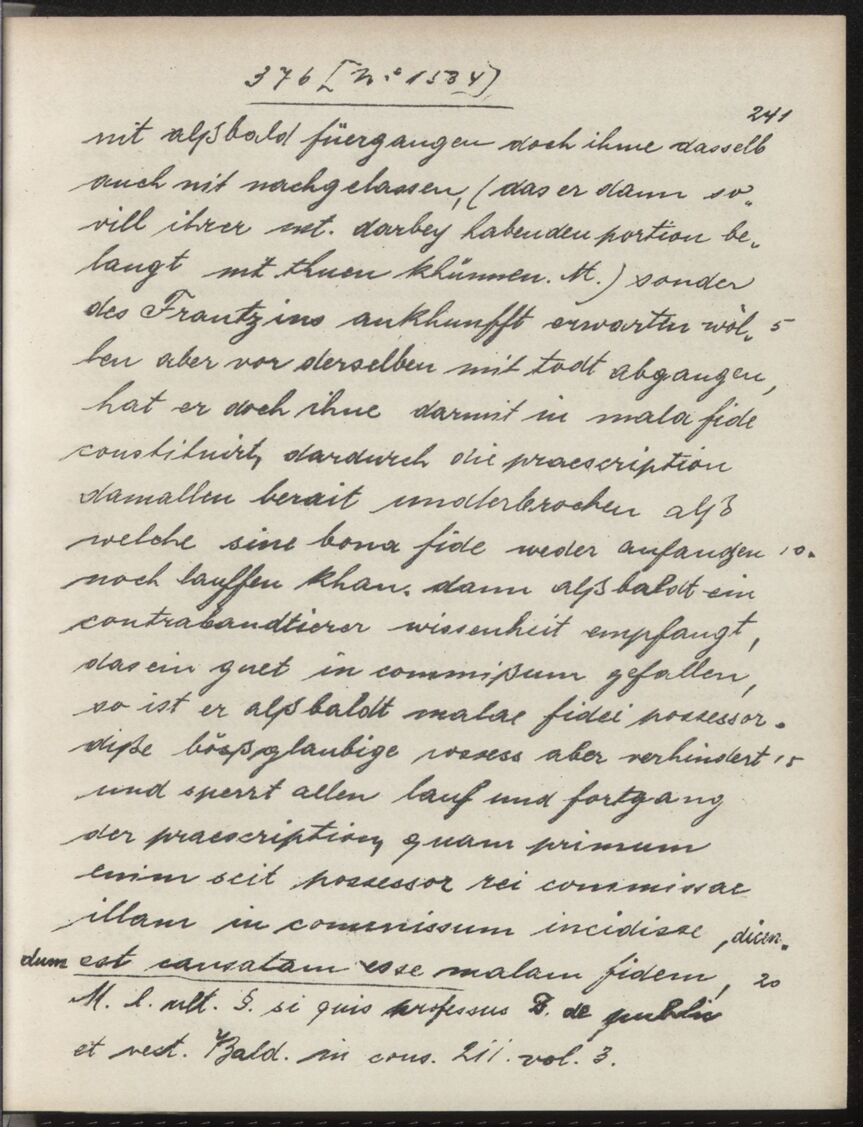 376 [N.º 1534]
241
nit alßbald füergangen doch ihme dasselb
auch nit nachgelassen, (das er dann so„
vill ihrer mt. darbey habenden portion be„
langt nit thuen khünnen. M.) sonder
des Frantzins ankhunfft erwarten wöl„ 5
len aber vor derselben mit todt abgangen,
hat er doch ihne darmit in mala fide
constituirt, dardurch die praescription
damallen berait underbrochen alß
welche sine bona fide weder anfangen 10.
noch lauffen khan. dann alßbaldt ein
contrabandtierer wissenheit empfangt,
das ein guet in commißum gefallen,
so ist er alßbaldt malae fidei possessor.
diße bößglaubige possess aber verhindert 15
und sperrt allen lauf und fortgang
der praescription, quam primum
enim scit possessor rei commissae
illam in commissum incidisse, dicen„
dum est causatam esse malam fidem, 20
M. l. ult. §. si quis professus D. de public
et vect. Bald. in cons. 211. vol. 3.